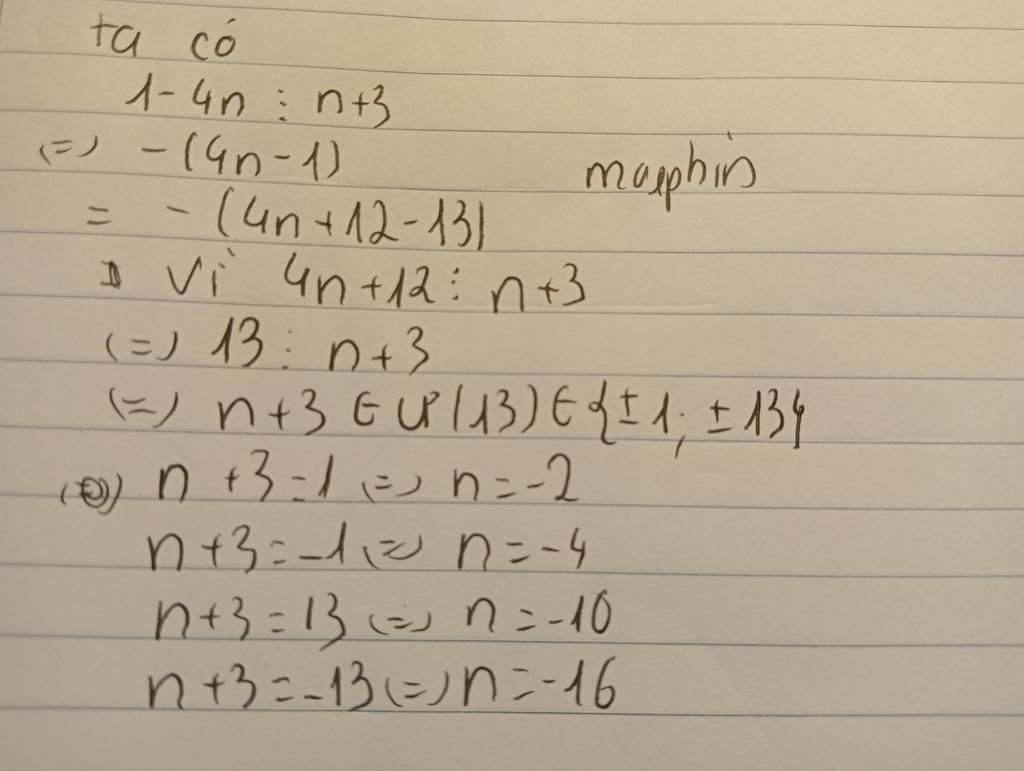 ta có
1-4n ⋮ n+3
(=) -(4n-1)
maphin
= -(4n+12-13)
Vì 4n+12 ⋮ n+3
(=) 13 ⋮ n+3
(=) n+3 ∈ Ư(13) ∈ {±1; ±13}
n+3=1 (=) n=-2
n+3=-1 (=) n=-4
n+3=13 (=) n=-10
n+3=-13 (=) n=-16